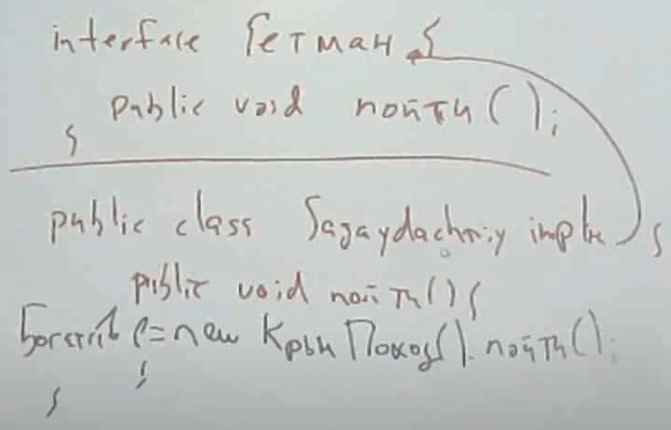 interface Гетман {
public void пойти();
}
public class Sagaydachniy imple {
public void пойти(){
= new Крым Поход().пойти();
}
}